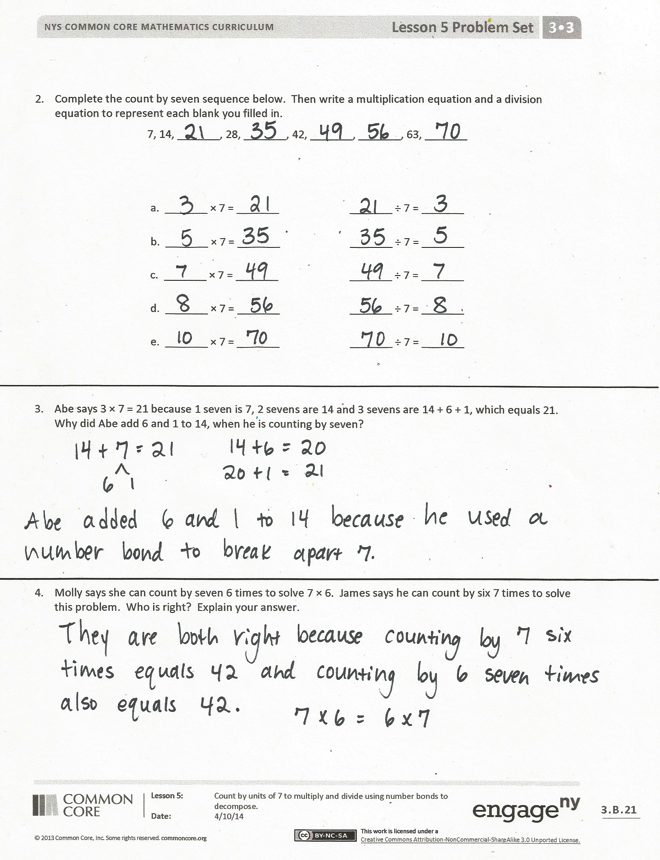 NYS COMMON CORE MATHEMATICS CURRICULUM
Lesson 5 Problem Set 3•3
2. Complete the count by seven sequence below. Then write a multiplication equation and a division
equation to represent each blank you filled in.
7, 14, 21, 28, 35, 42, 49, 56, 63, 70
a. 3 × 7 = 21 21 ÷ 7 = 3
b. 5 × 7 = 35 35 ÷ 7 = 5
c. 7 × 7 = 49 49 ÷ 7 = 7
d. 8 × 7 = 56 56 ÷ 7 = 8
e. 10 × 7 = 70 70 ÷ 7 = 10
3. Abe says 3 × 7 = 21 because 1 seven is 7, 2 sevens are 14 and 3 sevens are 14 + 6 + 1, which equals 21.
Why did Abe add 6 and 1 to 14, when he is counting by seven?
14 + 7 = 21 14 + 6 = 20
6 1 20 + 1 = 21
Abe added 6 and 1 to 14 because he used a
number bond to break apart 7.
4. Molly says she can count by seven 6 times to solve 7 × 6. James says he can count by six 7 times to solve
this problem. Who is right? Explain your answer.
They are both right because counting by 7 six
times equals 42 and counting by 6 seven times
also equals 42.
7 × 6 = 6 × 7
COMMON
CORE
Lesson 5: Count by units of 7 to multiply and divide using number bonds to
decompose.
Date: 4/10/14
engage ny
3.B.21
© 2013 Common Core, Inc. Some rights reserved. commoncore.org
cc BY-NC-SA
This work is licensed under a
Creative Commons Attribution-NonCommercial-ShareAlike 3.0 Unported License.